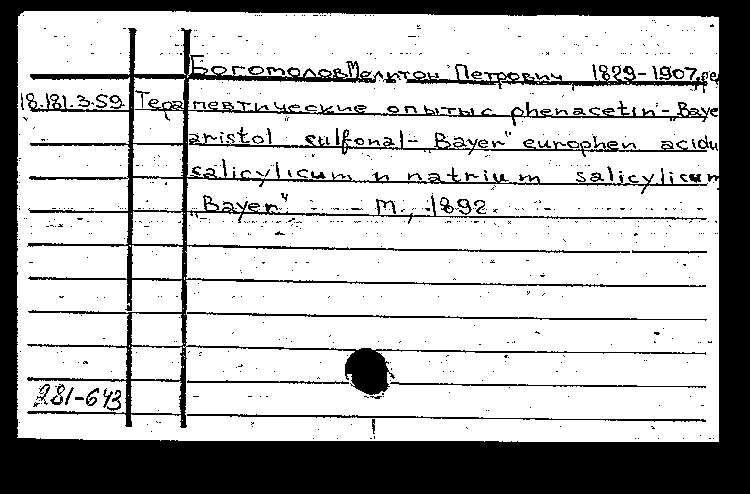 Богомолов Мелитон Петрович, 1829-1907, ре
18.181.3.59. Терапевтические опыты с phenacetin-„Baye
aristol sulfonal-„Bayer" europhen acidu
salicylicum и natrium salicylicum
„Bayer" - - - М., 1892.
281-643